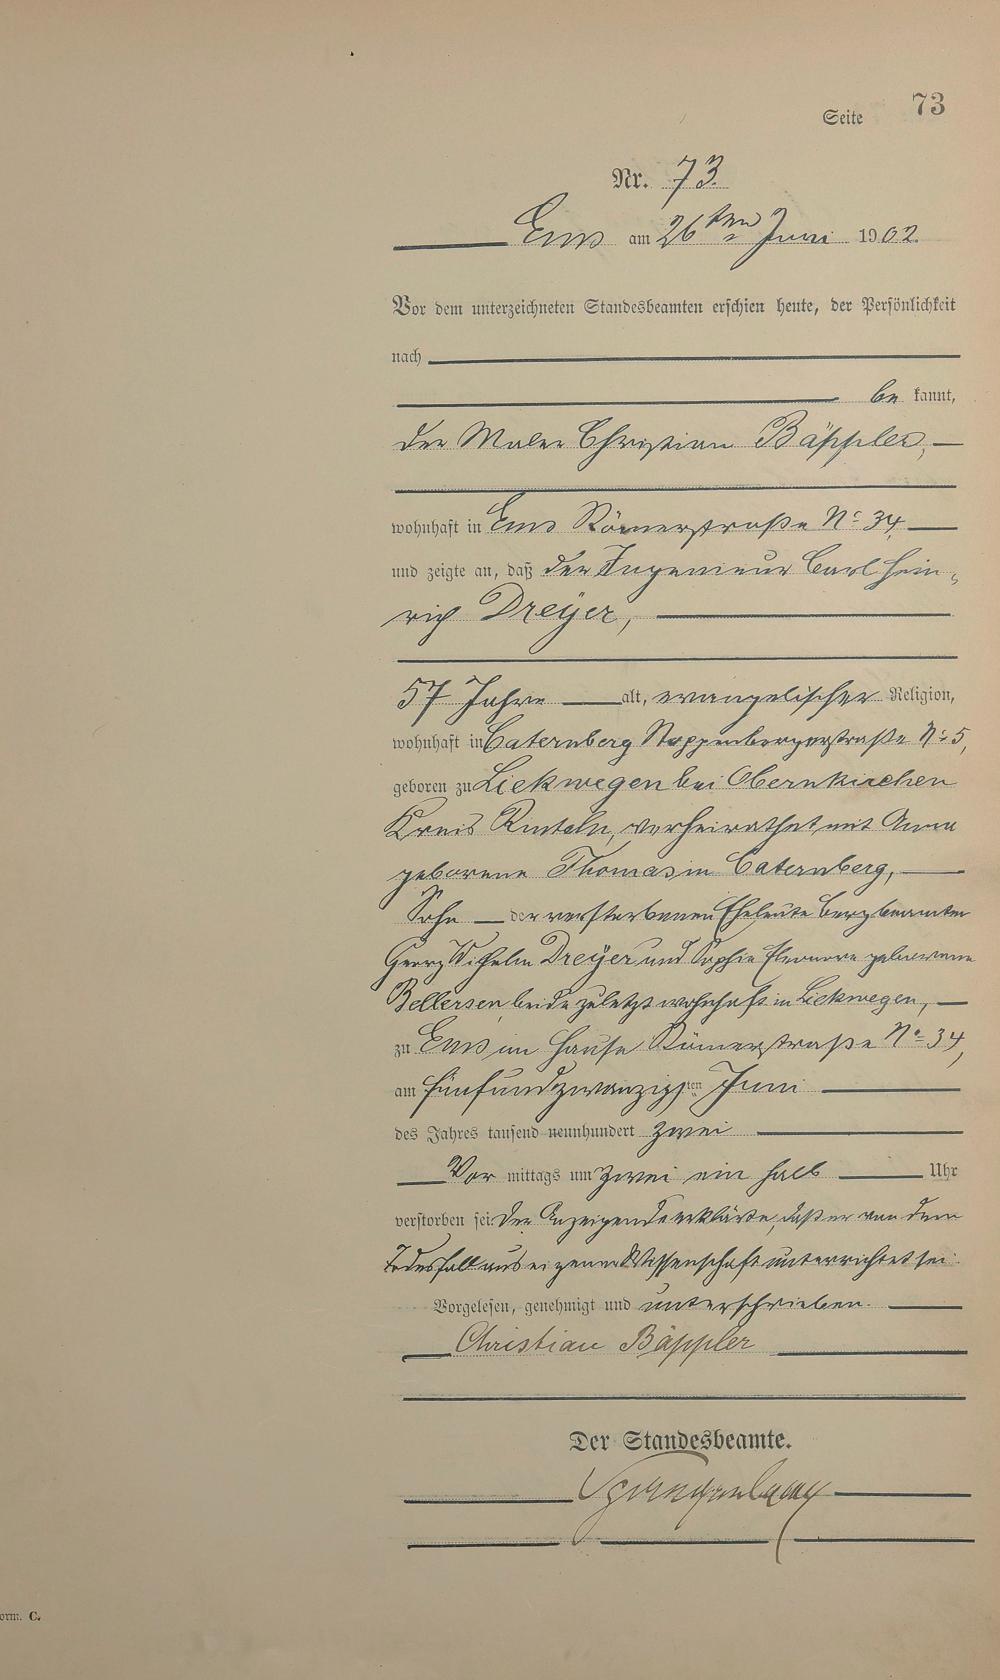 Seite 73
Nr. 73.
Ems am 26ten Juni 1902.
Vor dem unterzeichneten Standesbeamten erschien heute, der Persönlichkeit
nach
be kannt,
der Maler Christian Bäppler,
wohnhaft in Ems Römerstraße No 34,
und zeigte an, daß der Ingenieur Carl Hein-
rich Dreyer,
57 Jahre alt, evangelischer Religion,
wohnhaft in Caternberg Stoppenbergerstraße No 5,
geboren zu Liekwegen bei Obernkirchen
Kreis Rinteln, verheirathet mit Anna
geborene Thomas in Caternberg,
Sohn der verstorbenen Eheleute Bergbeamter
Georg Wilhelm Dreyer und Sophie Eleonore geborene
Bellersen, beide zuletzt wohnhaft in Liekwegen,
zu Ems im Hause Römerstraße No 34,
am fünfundzwanzigsten Juni
des Jahres tausend neunhundert zwei
Vor mittags um zwei ein halb Uhr
verstorben sei. Der Anzeigende erklärte, daß er von dem
Todesfall aus eigener Wissenschaft unterrichtet sei.
Vorgelesen, genehmigt und unterschrieben.
Christian Bäppler
Der Standesbeamte.
orm. C.